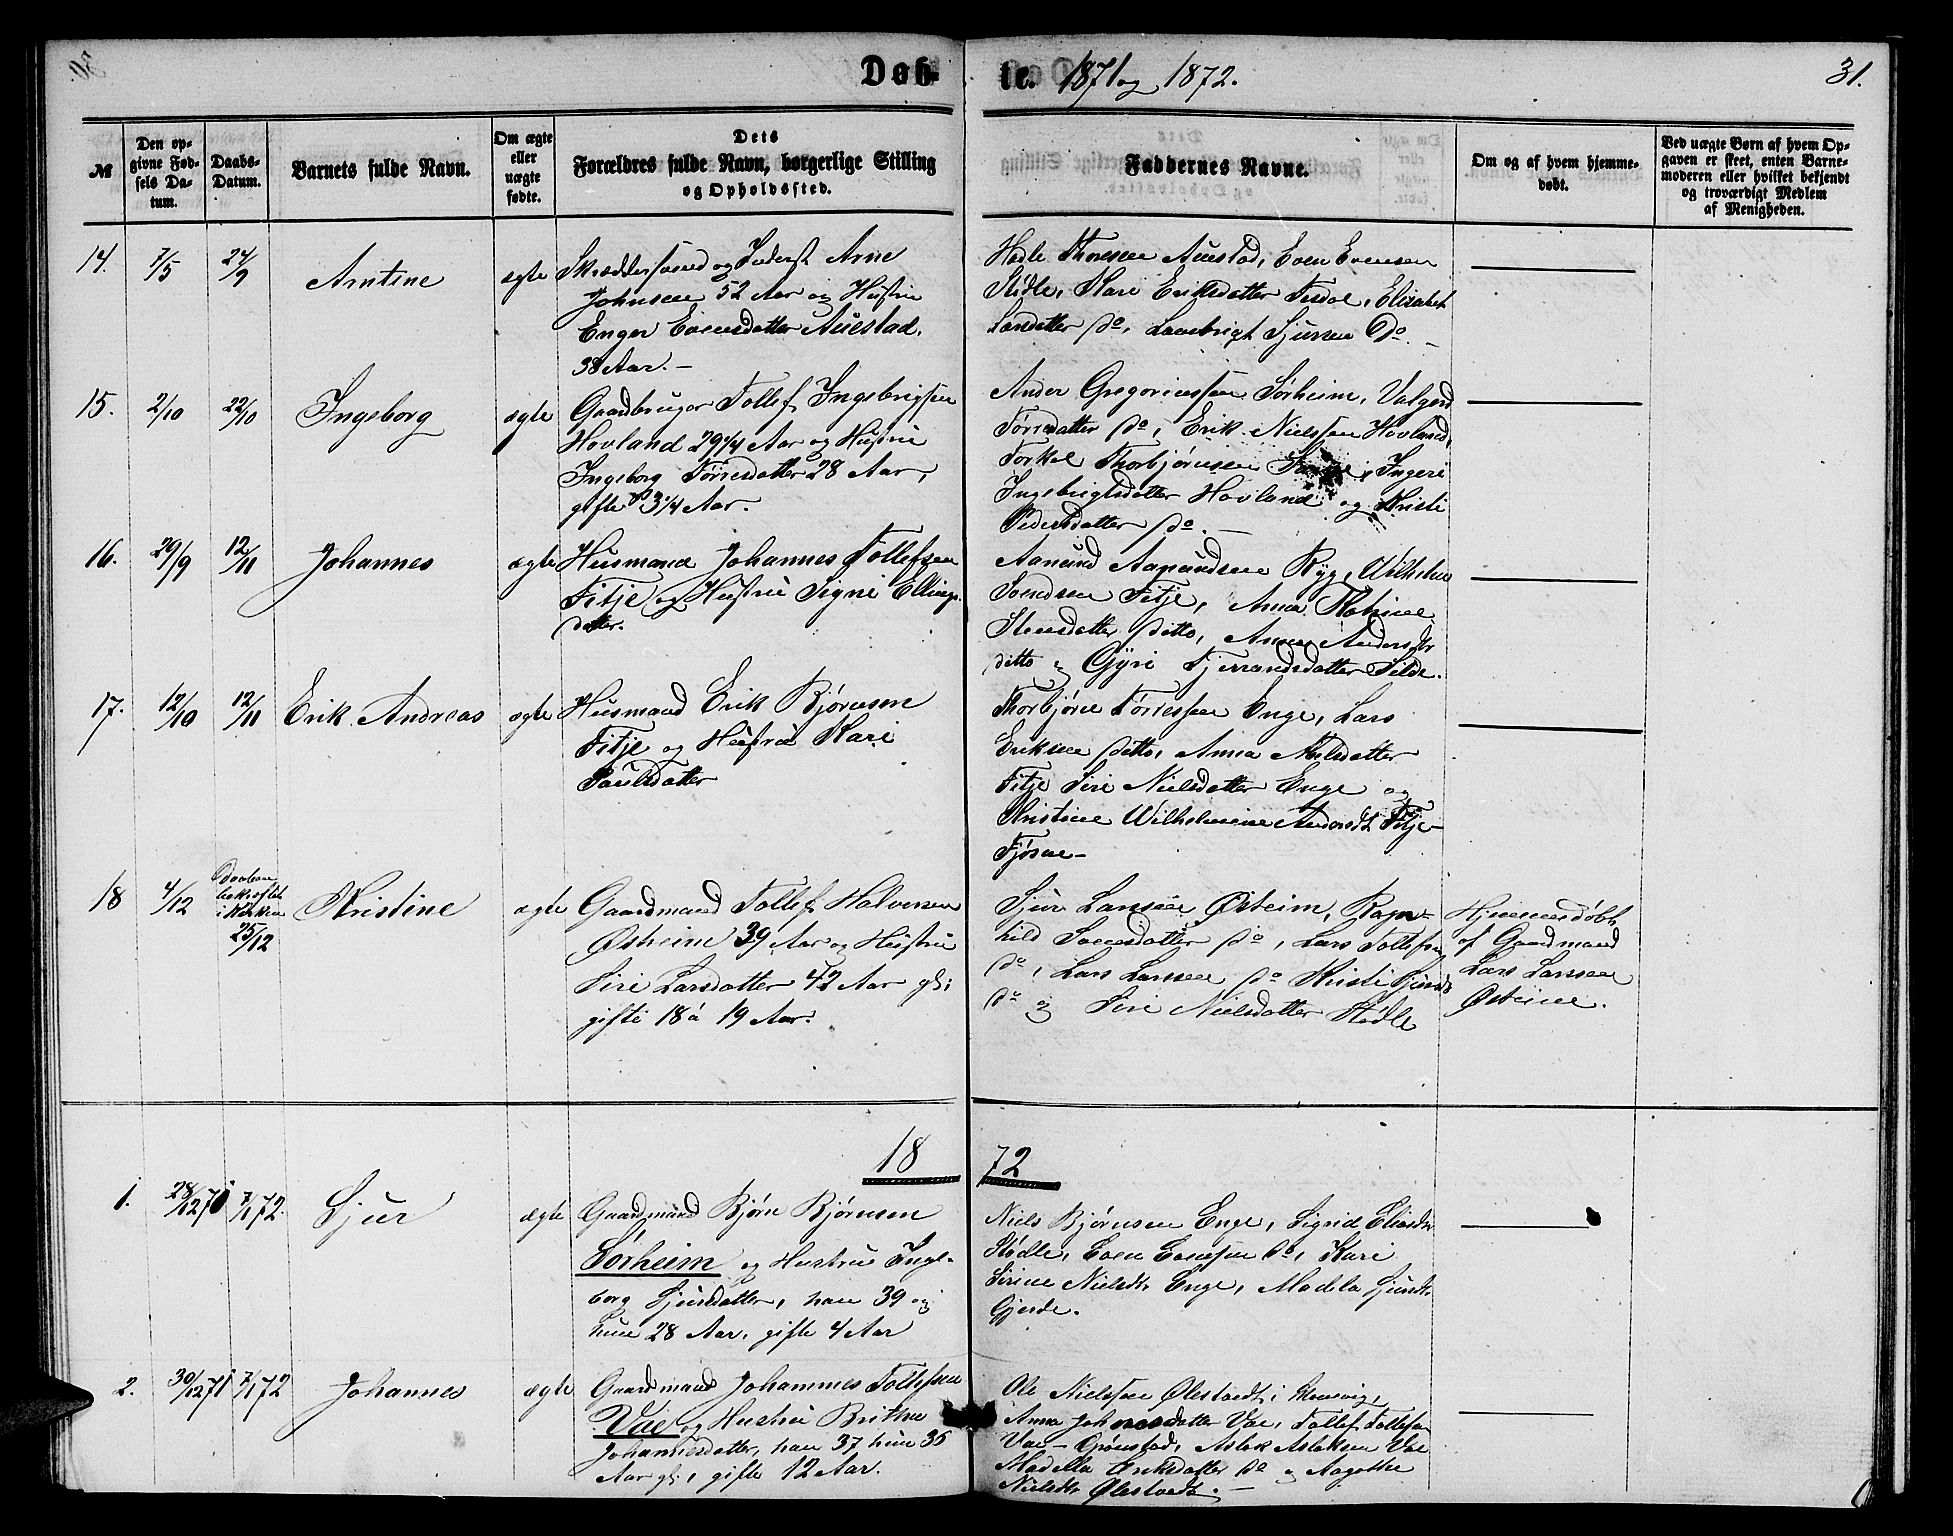 Døb-
te. 1871 og 1872.
31.
№
Den op-
givne Fød-
sels Da-
tum.
Daabs-
Datum.
Barnets fulde Navn.
Om ægte
eller
uægte
fødte.
Dets
Forældres fulde Navn, borgerlige Stilling
og Opholdssted.
Faddernes Navne.
Om og af hvem hjemme-
døbt.
Ved uægte Børn af hvem Op-
gaven er skeet, enten Barne-
moderen eller hvilket bekjendt
og troværdigt Medlem
af Menigheden.
14. 7/5 24/9 Arntine ægte
Skræddersvend og Inderst Arne
Johnsen 52 Aar og Hustru
Enger Evensdatter Auestad.
38 Aar. -
Hadle Thoresen Auestad, Even Evensen
Stødle, Kari Eriksdatter Tesdal, Elisabet
do, Sjursen do. -
15. 2/10 22/10 Ingeborg ægte
Gaardbruger Tollef Ingebrigtsen
Hovland 29 1/4 Aar og Hustru
Ingeborg Tørresdatter 28 Aar,
gifte 3 1/4 Aar.
Ander Gregoriussen Sørheim, Valgerd
Tørresdatter do, Erik Nielssen Hovland,
Torkel Thorbjørnsen Ingeri
Ingebrigtsdatter Hovland og Kristi
Pedersdatter do. -
16. 29/9 12/11 Johannes ægte
Husmand Johannes Tollefsen
Fitje og Hustru Signi Ellings-
datter.
Aamund Aamundsen Ryg, Wilhelm
Svendsen Fitje, Anna Kathrine
Steensdatter ditto, Anna Andersdtr
ditto og Gyri Fjerrandsdatter Silde.
17. 12/10 12/11 Erik Andreas ægte
Husmand Erik Bjørnsen
Fitje og Hustru Kari
Paulsdatter
Thorbjørn Tørressen Enge, Lars
Eriksen ditto, Anna Nilsdatter
Fitje Siri Nielsdatter Enge og
Kristine Wilhelmine Andersdt. Fitje-
Fjøsne-
18 4/12
Daaben
bekræftet
i Kirken
25/12
Kristine ægte
Gaardmand Tollef Halvorsen
Østheim 39 Aar og Hustru
Siri Larsdatter 42 Aar gl;
gifte 18 á 19 Aar.
Sjur Larssen Østeim, Ragn-
hild do, Lars Tollefsen
do, Lars Larssen do Kristi Sjursdt
do og Siri Nielsdatter Stødle
Hjemmedøbt
af Gaardmand
Lars Larssen
Østeim.
18
72
1. 28/12 71 7/1 72. Sjur ægte
Gaardmand Bjørn Bjørnsen
Sørheim og Hustru Inge-
borg Sjursdatter, han 39 og
hun 28 Aar, gifte 4 Aar
Niels Bjørnsen Enge, Sigrid Eliasdtr
Stødle, Even Evensen do, Kari
Sirine Nielsdtr Enge, Madela Sjursdtr
Gjerde.
2. 30/12 71 7/1 72 Johannes ægte
Gaardmand Johannes Tollefsen
Vae og Hustru Brithe
Johannesdatter, han 37 hun 35
Aar gl:, gifte 12 Aar.
Ole Nielssen Ølestvedt i
Anna Johnesdatter Vae, Tollef Tollefsen
Vae- Grønstad, Aslak Aslaksen Vae
Madella Eriksdatter do og Aagothe
Nielsdtr Ølestvedt. -